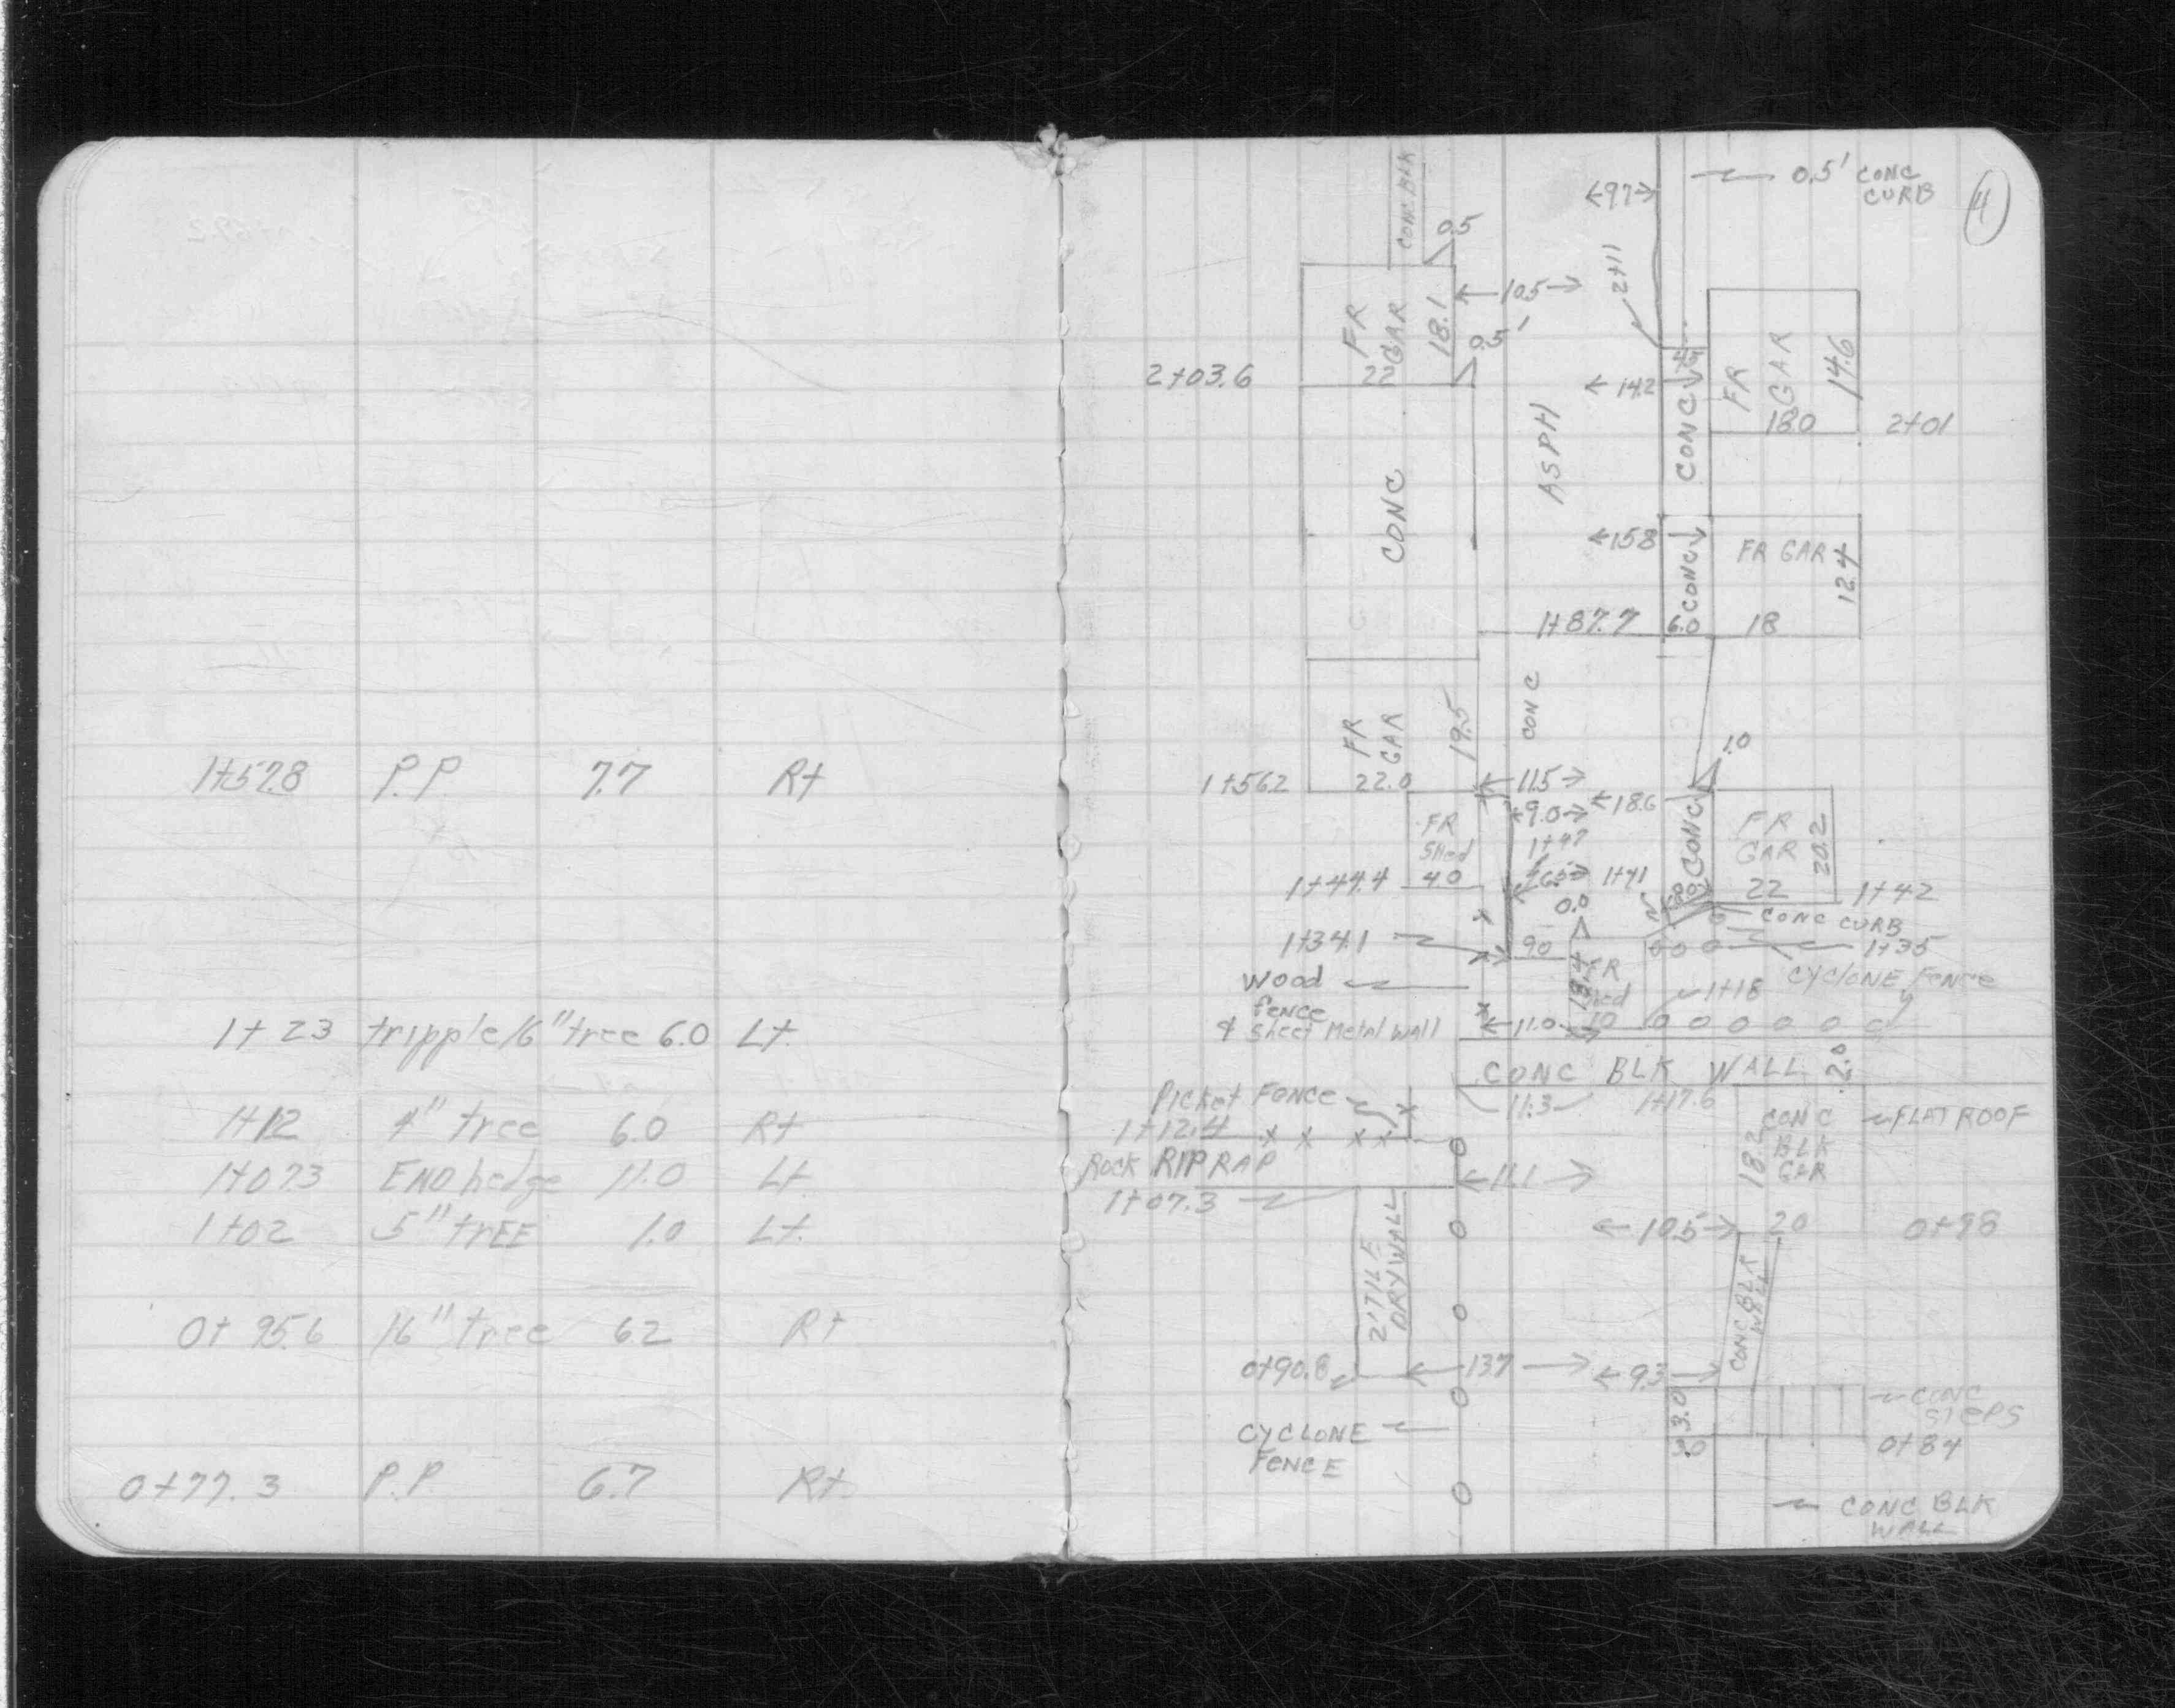 1+57.8 P.P. 7.7 Rt
1+23 tripple/6" tree 6.0 Lt.
1+12 4" tree 6.0 Rt
1+07.3 END hedge 11.0 Lt
1+02 5" trEE 1.0 Lt.
0+95.6 16" tree 6.2 Rt
0+77.3 P.P. 6.7 Rt.
4
0.5' CONC
CURB
←9.7→
CONC. BLK
0.5
←10.5→
2+11
FR
GAR
18.1
22
0.5'
2+03.6
←14.2
4.5
CONC
FR
GAR
14.6
18.0
2+01
ASPH
CONC
←15.8
CONC
FR GAR
12.4
1+87.7
6.0
18
CONC
FR
GAR
19.5
22.0
1+56.2
←11.5→
1.0
←9.0→
←18.6
1+47
FR
Shed
4.0
1+44.4
1+41
0.0
CONC
FR
GAR
20.2
22
1+42
CONC CURB
1+34.1
9.0
1+35
CYCLONE FENCE
Wood
fence
& Sheet Metal Wall
FR
Shed
13.4
10
1+18
←11.0→
CONC BLK WALL
2.0
Picket Fence
1+12.4
11.3
1+17.6
CONC
BLK
GAR
18.2
FLAT ROOF
ROCK RIPRAP
1+07.3
←11.1→
2' TILE
DRYWALL
←10.5→
20
0+98
CONC BLK
WALL
0+90.8
←13.7→
←9.3→
CONC
STEPS
3.0
3.0
0+84
CYCLONE
FENCE
CONC BLK
WALL